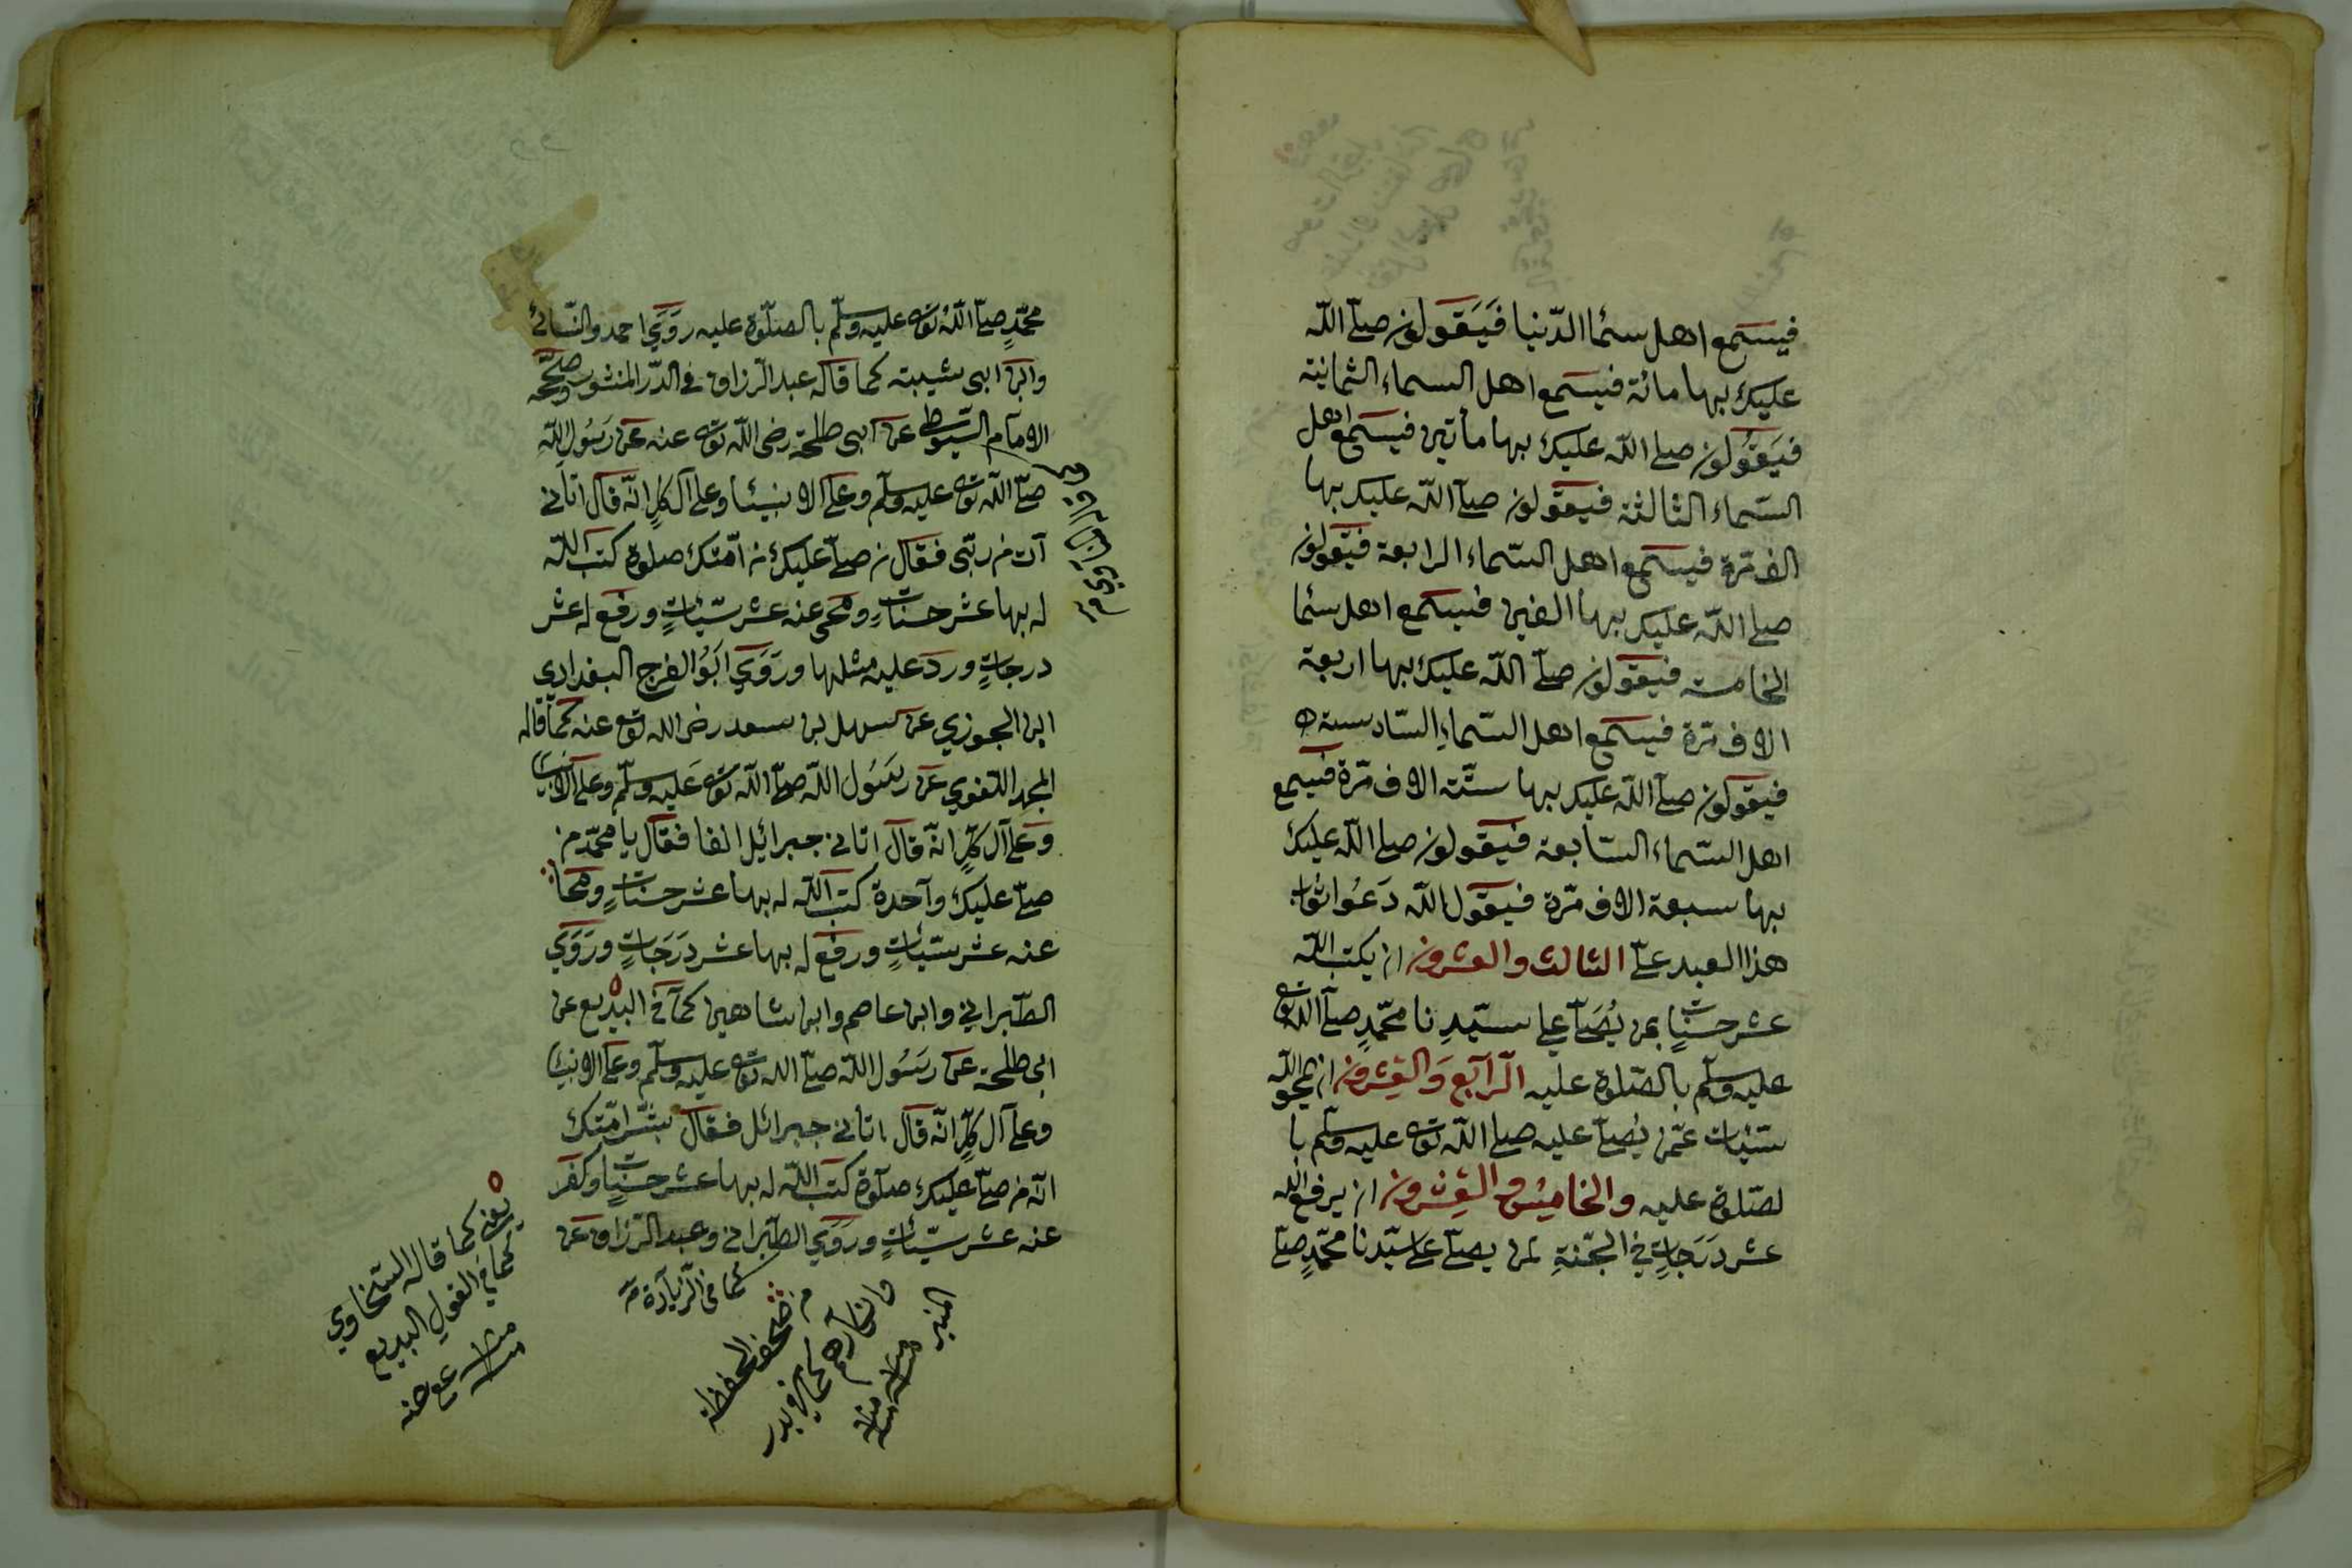 فيستمع اهل سمٔا الدّنيا فَيَقولون صلّى اللّه
عليك بها مائة فيستمع اهل السماء الثمانية
فيَقوُلون صلى اللّه عليك بها مأتين فيستمع اهل
السّماء الثالثة فيقولون صلّى اللّه عليك بها
الف مّرة فيستمع اهل السّماء الرابعة فيقولون
صلى اللّه عليك بها الفين فيستمع اهل سمٔا
الخامسة فيقولون صلّى اللّه عليك بها اربعة
الاف مّرة فيستمع اهل السّماءِ السّادسة
فيقولون صلّى اللّه عليك بها ستّة الاف مّرة فيستمع
اهل السّماء السّابعة فيقولون صلى اللّه عليك
بها سبعة الاف مّرة فيقول اللّه دَعُوا ثواب
هذا العبد عليّ الثالث والعشرون ان يكتب اللّه
عشر حسناتٍ لمن يُصَلّى على سيّدِنا محمّدٍ صلّى اللّه تعه
عليه وسلّم بالصّلوة عليه الرّابع وَالعِشرون ان يمحو اللّه
سيّئات عمّن يُصلّى عليه صلى اللّه تعه عليه وسلّم با
لصّلوة عليه والخامِسْ والعِشرون ان يرفع اللّه
عشر دَرَجاتٍ في الجّنةِ لمن يصلّى على سيّدنا محمّدٍ صلّى
محمّدٍ صلّى اللّه تعه عليه وسلّم بالصلّوة عليه روَيَ احمد والنّسائي
وابن ابى شيبة كما قاله عبد الرّزاق في الدّر المنثور وصحّحه
الامام السّيوطي عن ابى طلحة رضى اللّه تعه عنه عن رَسُول اللّه
صلّى اللّه تعه عليه وسلّم وعلى الانبئا وعلى آل كلٍ انّه قال اتاني
آت من ربّى فقال من صلّى عليك من امّتك صلوة كتب اللّه
له بها عشر حسناتٍ ومحى عنه عشر سيّئاتٍ ورفع له عشر
درجاتٍ وردّ عليه مثلها ورَوَيَ ابَوُ الفرج البغدادي
ابن الجوزي عن سهل بن سعد رضى اللّه تعه عنه كما قاله
المجد اللّغوي عن رسَوُل اللّه صلّى اللّه تعه عليه وسلّم وعلى الانبيا
وعلى آل كلٍّ انّه قال اتاني جبرائيل انفا فقال يا محمّد من
صلّى عليك وآحدة كتب اللّه له بها عشر حسناتٍ ومحا
عنه عشر سيّئاتٍ ورفع له بها عشر دَرَجَاتٍ ورَوَيَ
الطّبراني وابن عاصم وابن شاهين كما في البديع عن
ابى طلحة عن رسَوُل اللّه صلّى اللّه تعه عليه وسلّم وعلى الانبيا
وعلى آل كلٍّ انّه قال اتاني جبرائل فقال بشّر امّتك
انّه من صلّى عليك صلوة كتب اللّه له بها عشر حسناتٍ وكفّر
عنه عشر سيّئاتٍ ورَوَيَ الطّبراني وعبد الرّزاق عن
كما فى الزّيادة
يعنى كما قاله السّخاوي
كما في القول البديع